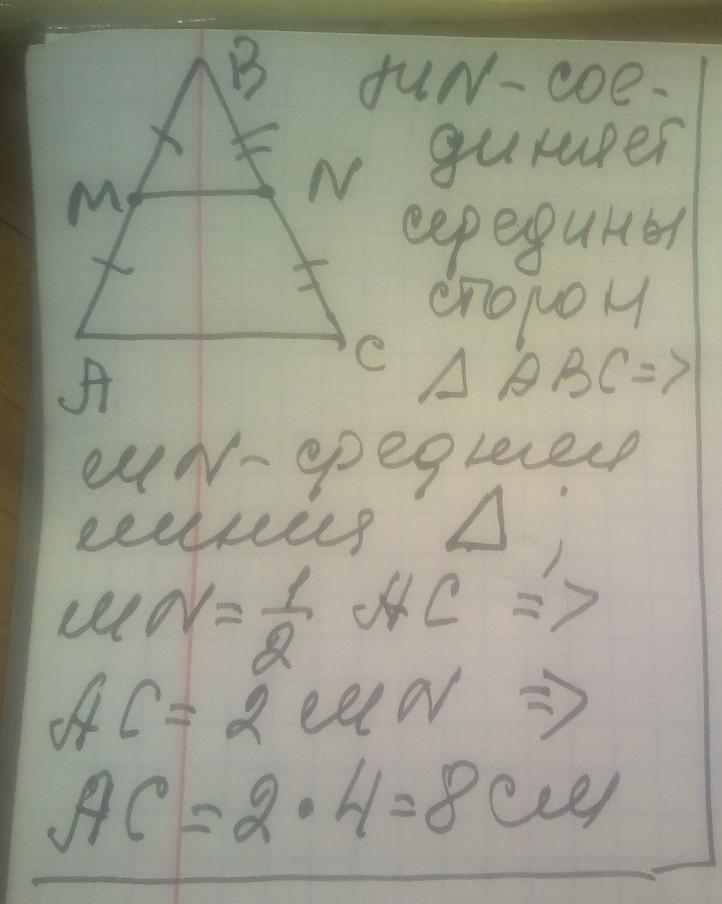 B
MN - сое-
диняет
M N
середины
сторон
A C
Δ ABC =>
MN - средняя
линия Δ ;
MN = 1/2 AC =>
AC = 2 MN =>
AC = 2 · 4 = 8 см